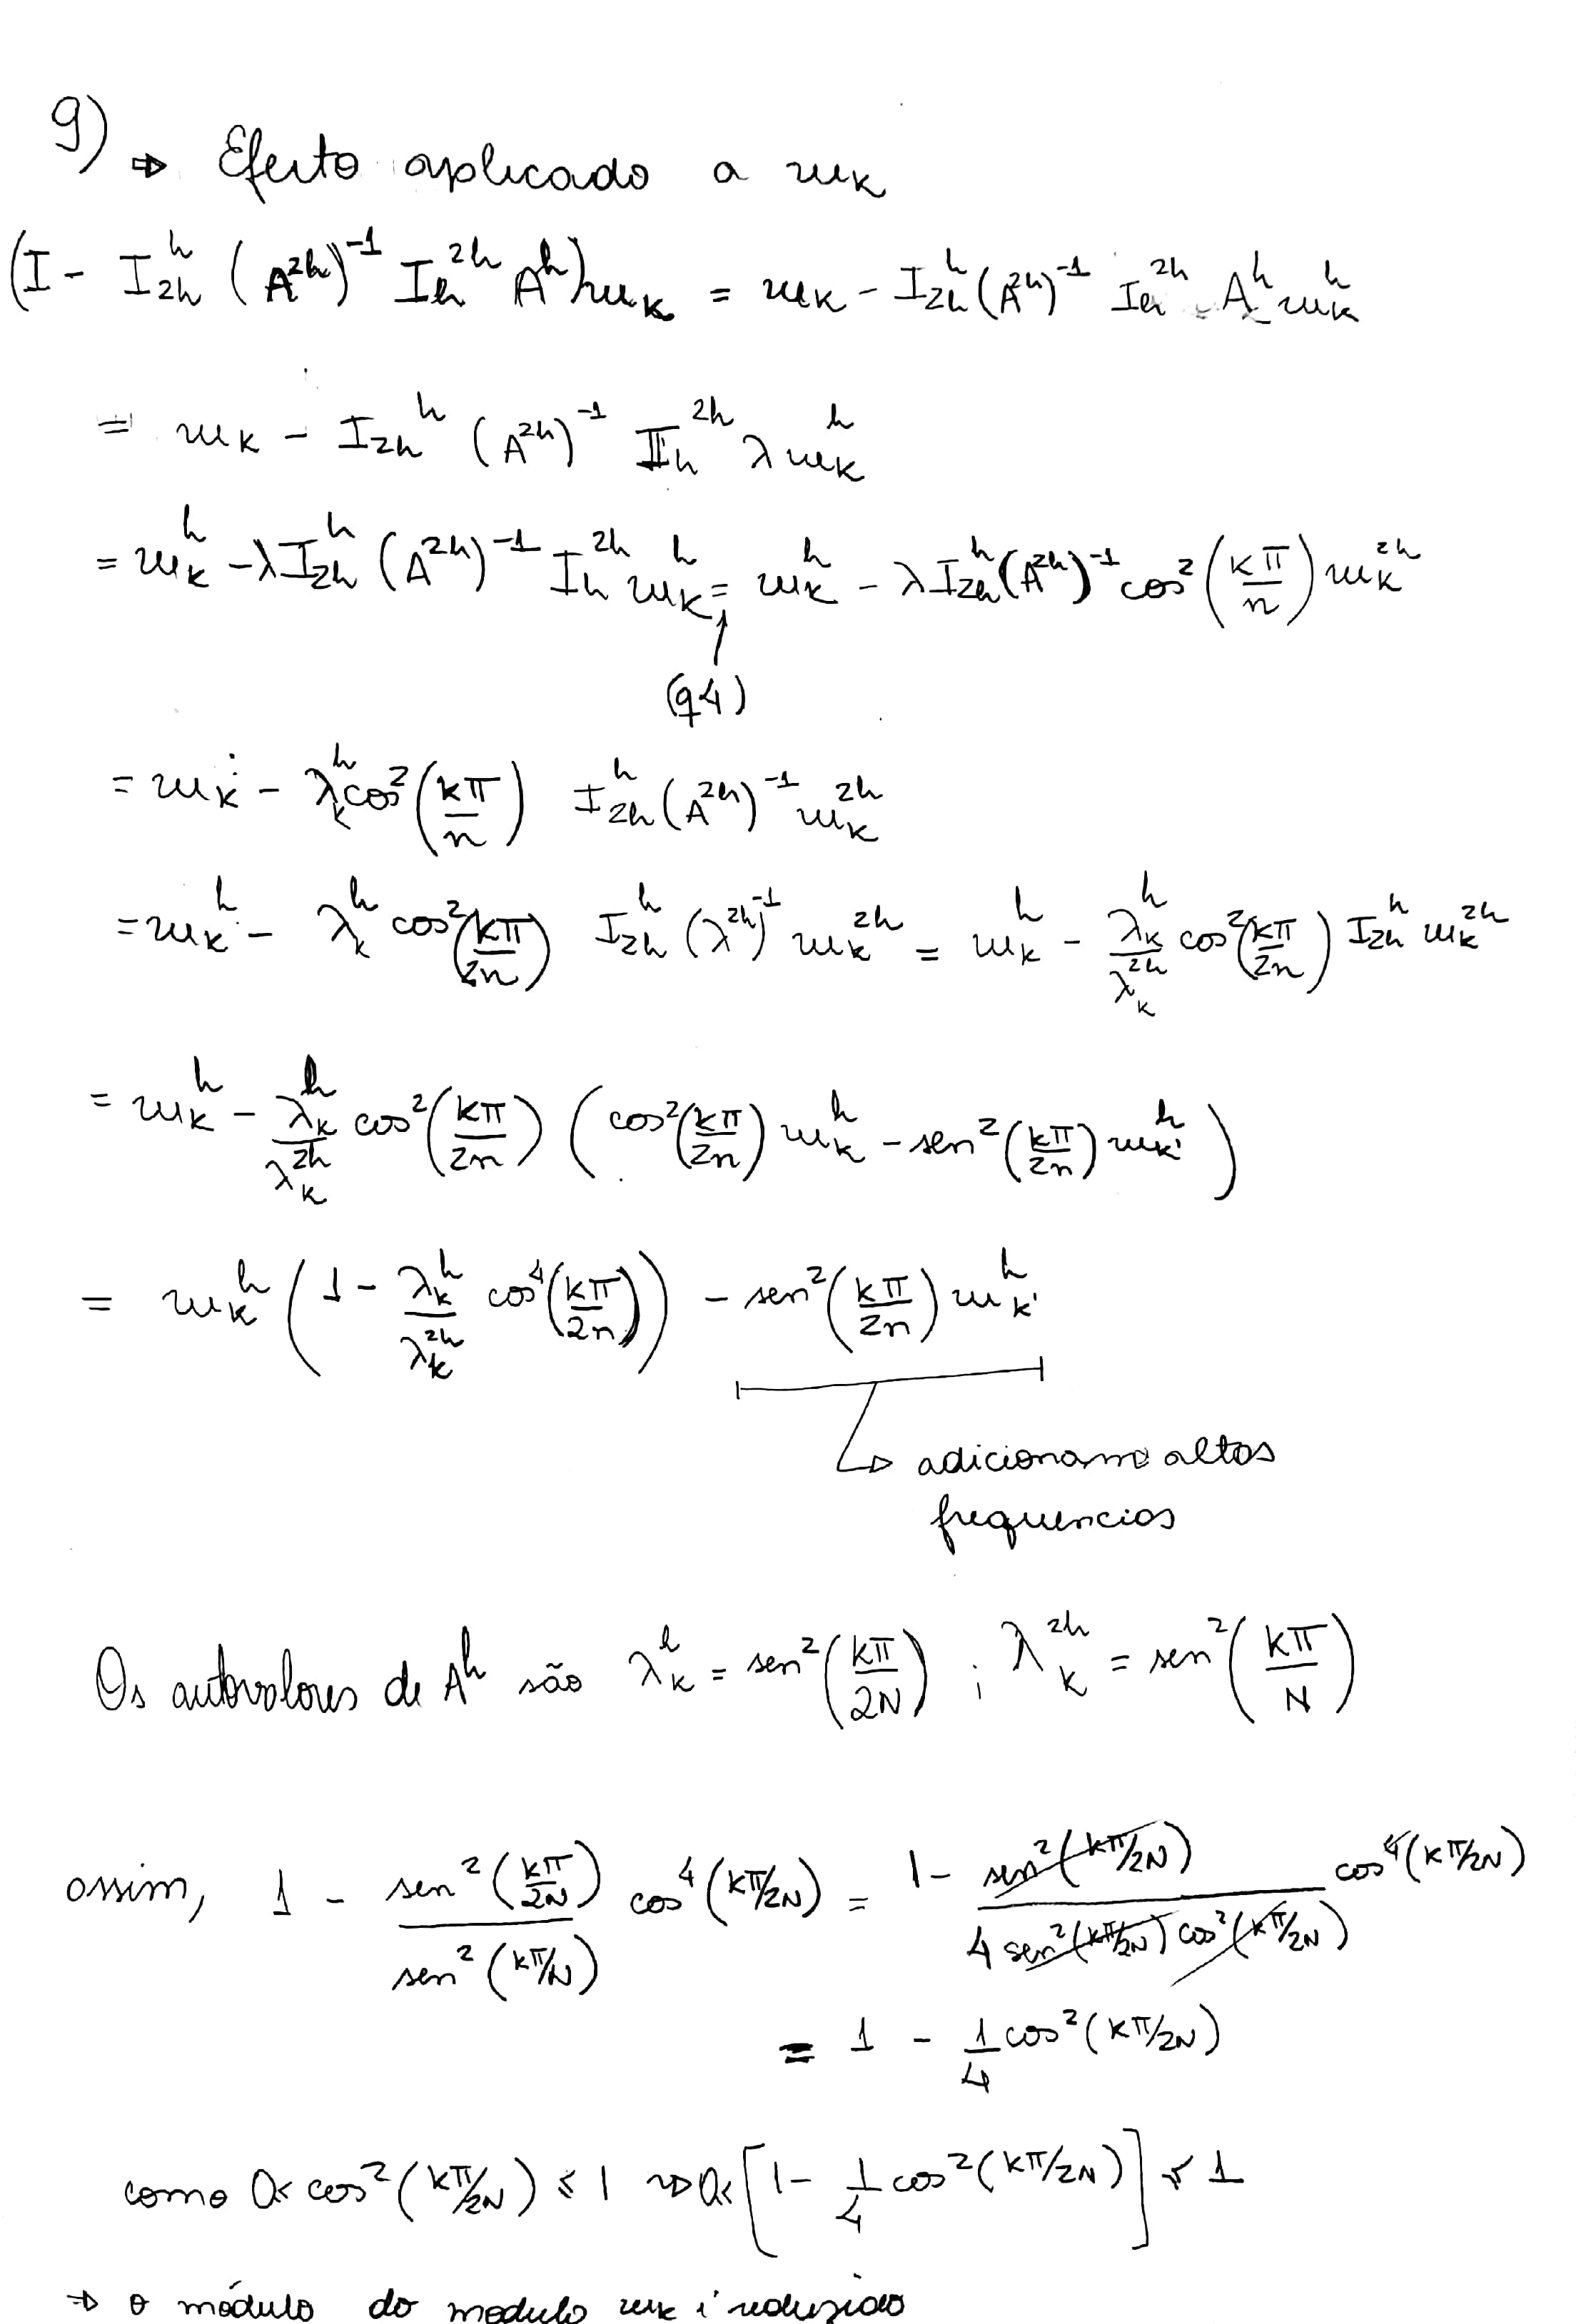 9) ⇒ Efeito aplicado a w_k
(I - I_{2h}^h (A^{2h})^{-1} I_h^{2h} A^h) w_k = w_k - I_{2h}^h (A^{2h})^{-1} I_h^{2h} A^h w_k^h
= w_k - I_{2h}^h (A^{2h})^{-1} I_h^{2h} λ w_k^h
= w_k^h - λ I_{2h}^h (A^{2h})^{-1} I_h^{2h} w_k^h = w_k^h - λ I_{2h}^h (A^{2h})^{-1} cos^2(kπ/n) w_k^{2h}
↑
(q4)
= w_k - λ_k^h cos^2(kπ/n) I_{2h}^h (A^{2h})^{-1} w_k^{2h}
= w_k^h - λ_k^h cos^2(kπ/2n) I_{2h}^h (λ^{2h})^{-1} w_k^{2h} = w_k^h - λ_k^h/λ_k^{2h} cos^2(kπ/2n) I_{2h}^h w_k^{2h}
= w_k^h - λ_k^h/λ_k^{2h} cos^2(kπ/2n) (cos^2(kπ/2n) w_k^h - sen^2(kπ/2n) w_{k'}^h)
= w_k^h (1 - λ_k^h/λ_k^{2h} cos^4(kπ/2n)) - sen^2(kπ/2n) w_{k'}^h
↳ adicionamo altas
frequencias
Os autovalores de A^h são λ_k^h = sen^2(kπ/2N) ; λ_k^{2h} = sen^2(kπ/N)
assim, 1 - sen^2(kπ/2N)/sen^2(kπ/N) cos^4(kπ/2N) = 1 - sen^2(kπ/2N)/(4 sen^2(kπ/2N) cos^2(kπ/2N)) cos^4(kπ/2N)
= 1 - 1/4 cos^2(kπ/2N)
como 0 < cos^2(kπ/2N) ≤ 1 ⇝ 0 < [1 - 1/4 cos^2(kπ/2N)] < 1
⇒ o módulo do modulo w_k é reduzido